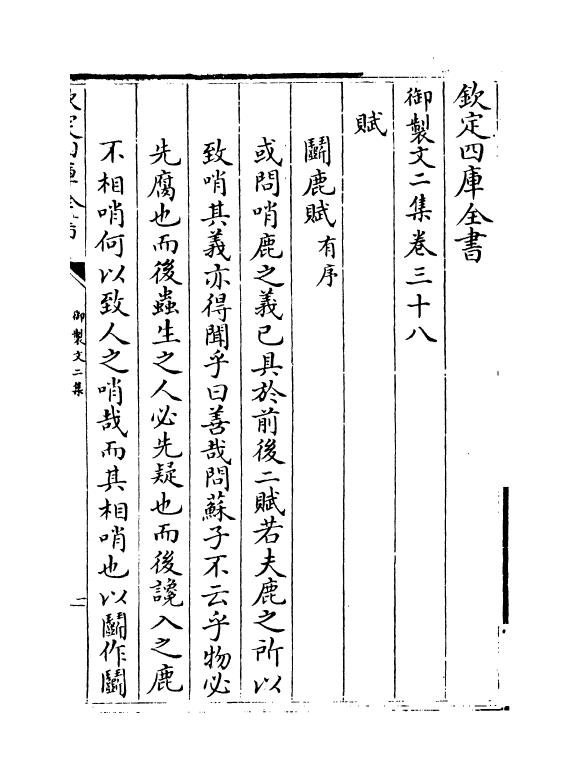 欽定四庫全書
御製文二集卷三十八
賦
鬭鹿賦有序
或問哨鹿之義已具於前後二賦若夫鹿之所以
致哨其義亦得聞乎曰善哉問蘇子不云乎物必
先腐也而後蟲生之人必先疑也而後讒入之鹿
不相哨何以致人之哨哉而其相哨也以鬭作鬭
御製文二集